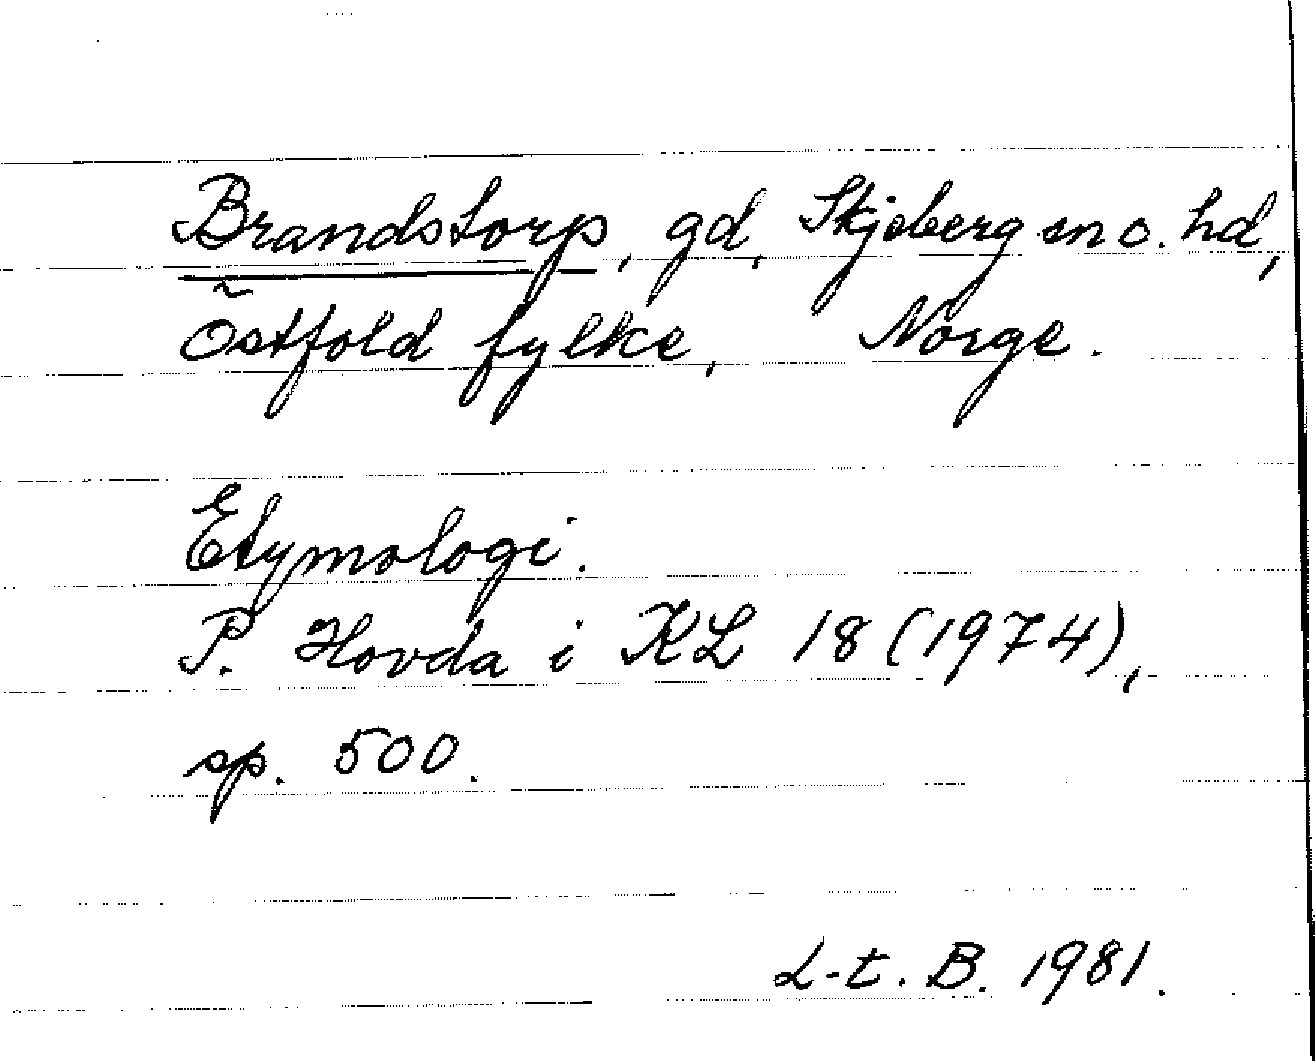 Brandstorp, gd, Skjeberg sn o. hd,
Östfold fylke, Norge.
Etymologi.
P. Hovda i KL 18 (1974),
sp. 500.
L-t. B. 1981.